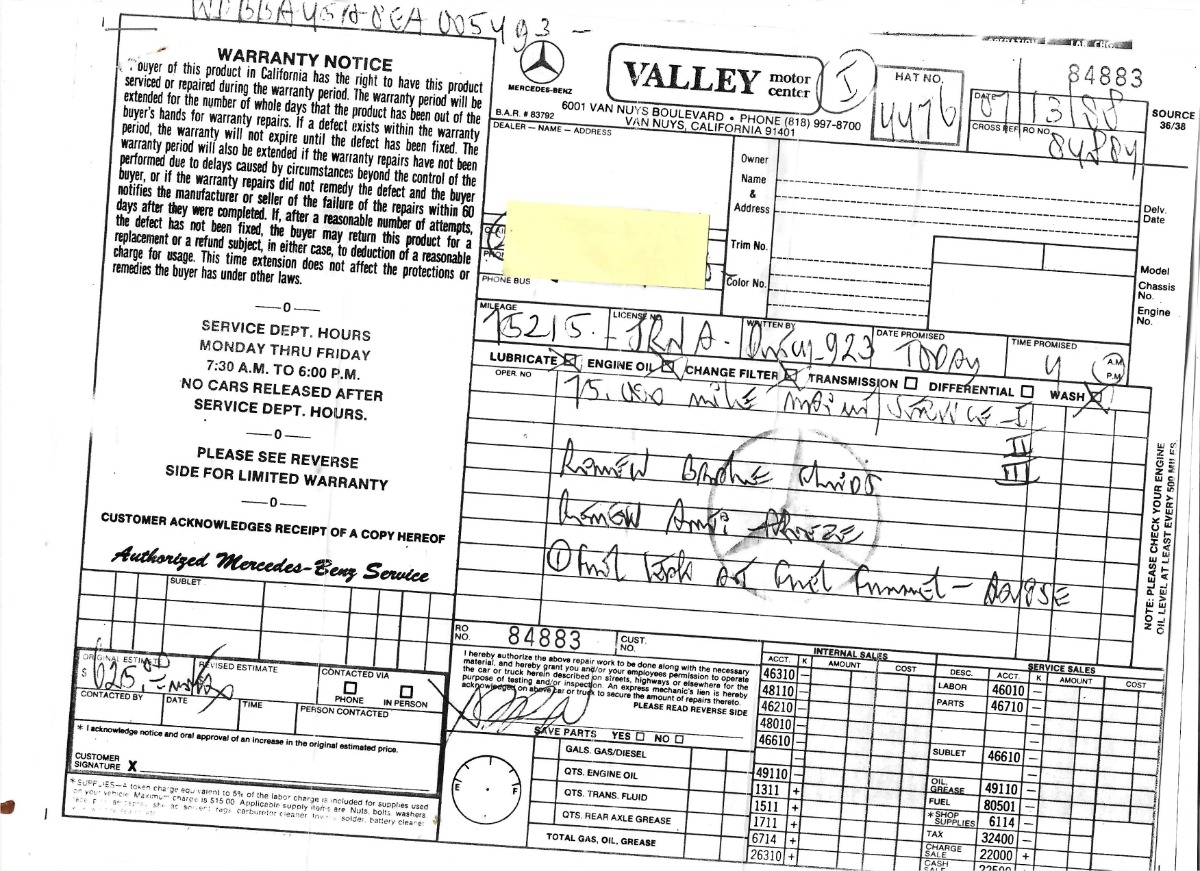 005493 -
WARRANTY NOTICE
ouyer of this product in California has the right to have this product
serviced or repaired during the warranty period. The warranty period will be
extended for the number of whole days that the product has been out of the
buyer's hands for warranty repairs. If a defect exists within the warranty
period, the warranty will not expire until the defect has been fixed. The
warranty period will also be extended if the warranty repairs have not been
performed due to delays caused by circumstances beyond the control of the
buyer, or if the warranty repairs did not remedy the defect and the buyer
notifies the manufacturer or seller of the failure of the repairs within 60
days after they were completed. If, after a reasonable number of attempts,
the defect has not been fixed, the buyer may return this product for a
replacement or a refund subject, in either case, to deduction of a reasonable
charge for usage. This time extension does not affect the protections or
remedies the buyer has under other laws.
—0—
SERVICE DEPT. HOURS
MONDAY THRU FRIDAY
7:30 A.M. TO 6:00 P.M.
NO CARS RELEASED AFTER
SERVICE DEPT. HOURS.
—0—
PLEASE SEE REVERSE
SIDE FOR LIMITED WARRANTY
—0—
CUSTOMER ACKNOWLEDGES RECEIPT OF A COPY HEREOF
Authorized Mercedes-Benz Service
SUBLET
ORIGINAL ESTIMATE
REVISED ESTIMATE
CONTACTED VIA
$ 625.
PHONE
IN PERSON
CONTACTED BY
DATE
TIME
PERSON CONTACTED
* I acknowledge notice and oral approval of an increase in the original estimated price.
CUSTOMER
SIGNATURE X
*SUPPLIES—A token charge equivalent to 5% of the labor charge is included for supplies used
on your vehicle. Maximum charge is $15.00. Applicable supply items are: Nuts, bolts, washers,
carburetor cleaner, solder, battery cleaner
MERCEDES-BENZ
VALLEY motor center
I
HAT NO.
4476
84883
B.A.R. # 83792
6001 VAN NUYS BOULEVARD • PHONE (818) 997-8700
VAN NUYS, CALIFORNIA 91401
DATE
07 13 88
CROSS REF. RO NO.
84884
SOURCE
36/38
DEALER — NAME — ADDRESS
Owner
Name
&
Address
Trim No.
Color No.
Delv.
Date
Model
Chassis
No.
Engine
No.
PHONE BUS
MILEAGE
75215.
LICENSE NO.
WRITTEN BY
923
DATE PROMISED
TODAY
TIME PROMISED
4
A.M.
P.M.
LUBRICATE ENGINE OIL CHANGE FILTER TRANSMISSION DIFFERENTIAL WASH
OPER. NO.
75.000 mile maint SERVICE-I
II
III
RENEW BRAKE FLUIDS
RENEW ANTI FREEZE
① Fuel leak at fuel
NOTE: PLEASE CHECK YOUR ENGINE
OIL LEVEL AT LEAST EVERY 500 MILES.
RO
NO. 84883
CUST.
NO.
I hereby authorize the above repair work to be done along with the necessary
material, and hereby grant you and/or your employees permission to operate
the car or truck herein described on streets, highways or elsewhere for the
purpose of testing and/or inspection. An express mechanic's lien is hereby
acknowledged on above car or truck to secure the amount of repairs thereto.
PLEASE READ REVERSE SIDE
SAVE PARTS YES NO
E
F
GALS. GAS/DIESEL
QTS. ENGINE OIL
QTS. TRANS. FLUID
QTS. REAR AXLE GREASE
TOTAL GAS, OIL, GREASE
INTERNAL SALES
ACCT. K AMOUNT COST
46310 —
48110
46210 —
48010
46610
49110
1311 +
1511 +
1711 +
6714 +
26310 +
SERVICE SALES
DESC. ACCT. K AMOUNT COST
LABOR 46010 —
PARTS 46710 —
SUBLET 46610 —
OIL, GREASE 49110 —
FUEL 80501
*SHOP SUPPLIES 6114 —
TAX 32400 —
CHARGE SALE 22000 +
CASH